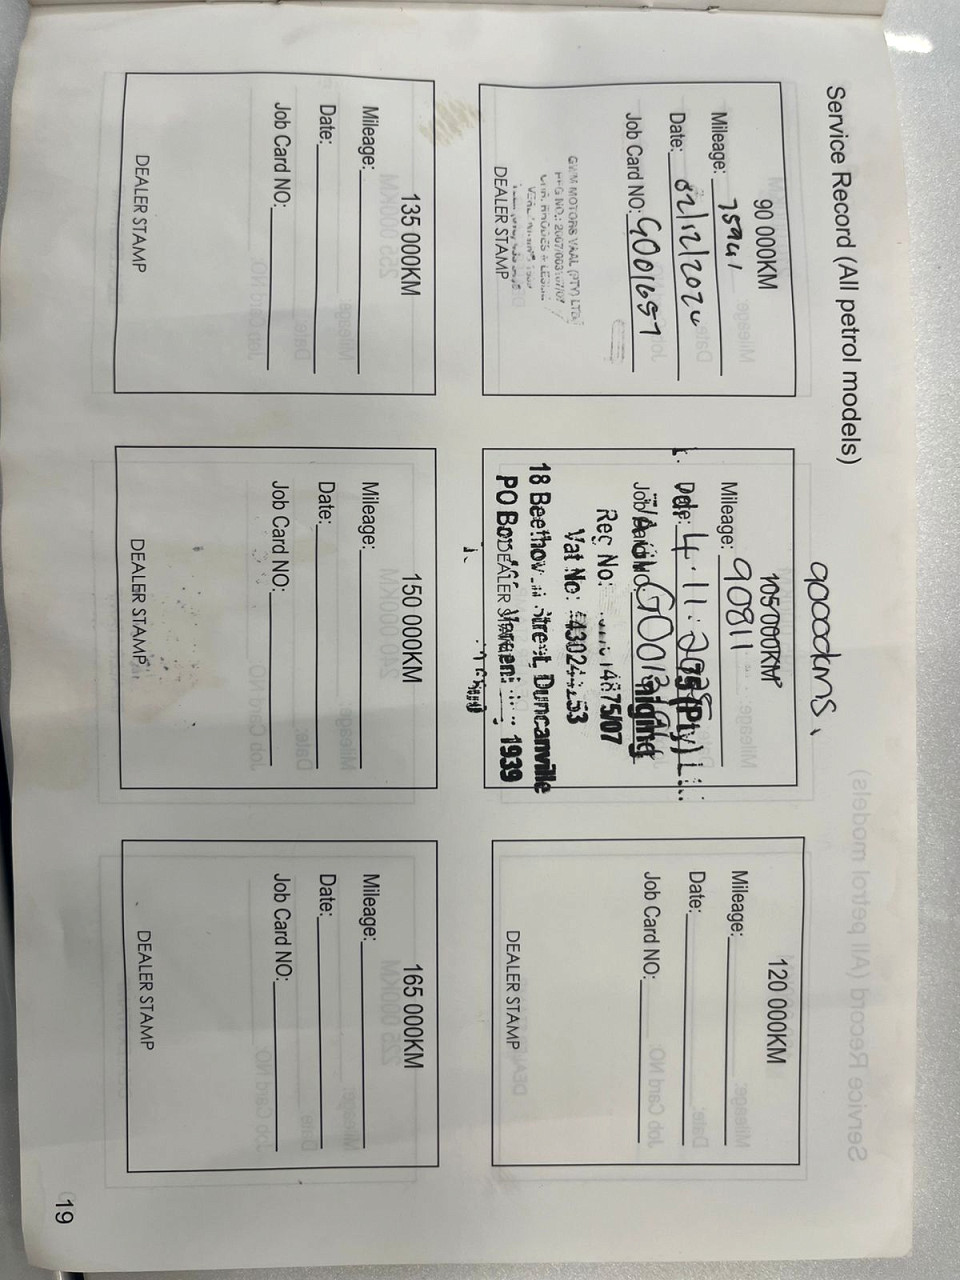 Service Record (All petrol models)
90000kms.
90 000KM
Mileage: 75941
Date: 02/12/2024
Job Card NO: G001657
GWM MOTORS VAAL (PTY) LTD
DEALER STAMP
105 000KM
Mileage: 90811
Date: 4.11.
(Pty)
Job Card NO:
Reg No: 4875/07
Vat No:
18 Street, Duncanville
PO Box 1939
DEALER STAMP
120 000KM
Mileage:
Date:
Job Card NO:
DEALER STAMP
135 000KM
Mileage:
Date:
Job Card NO:
DEALER STAMP
150 000KM
Mileage:
Date:
Job Card NO:
DEALER STAMP
165 000KM
Mileage:
Date:
Job Card NO:
DEALER STAMP
19